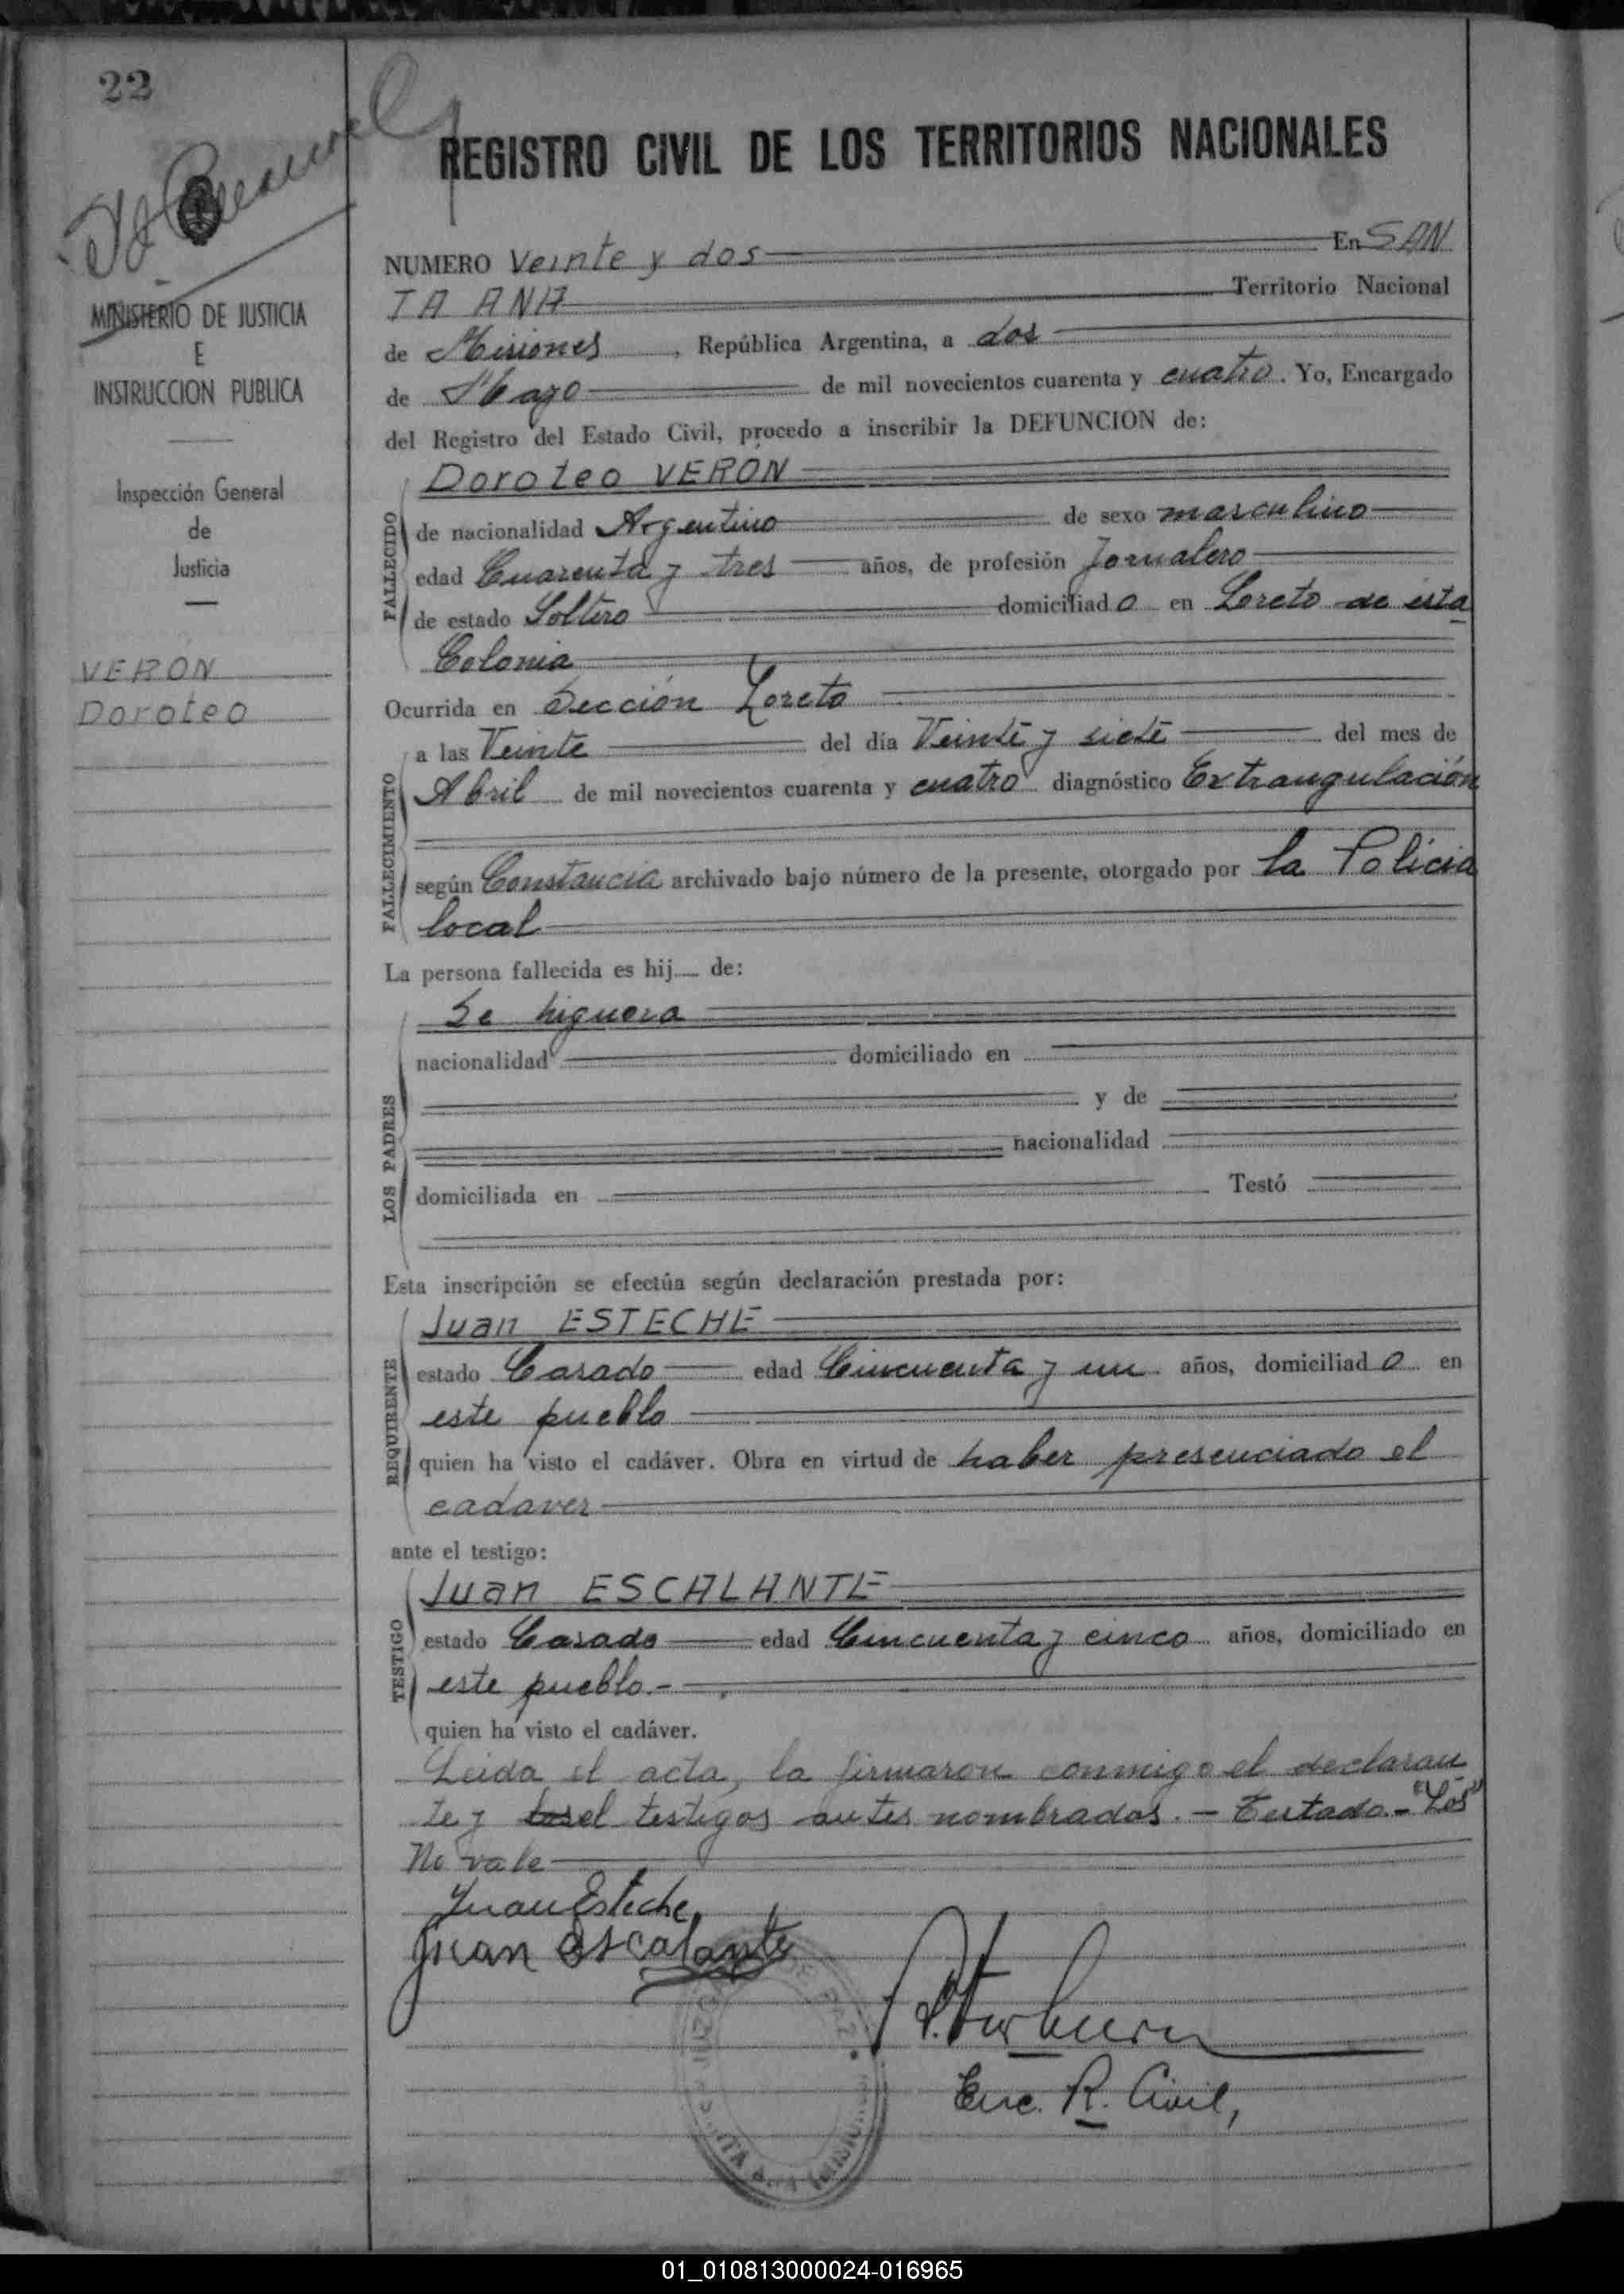 22
REGISTRO CIVIL DE LOS TERRITORIOS NACIONALES
MINISTERIO DE JUSTICIA
E
INSTRUCCION PUBLICA
Inspección General
de
Justicia
VERÓN
Doroteo
NUMERO Veinte y dos En SAN
TA ANA Territorio Nacional
de Misiones, República Argentina, a dos
de Mayo de mil novecientos cuarenta y cuatro. Yo, Encargado
del Registro del Estado Civil, procedo a inscribir la DEFUNCION de:
Doroteo VERÓN
FALLECIDO
de nacionalidad Argentino de sexo masculino
edad Cuarenta y tres años, de profesión Jornalero
de estado Soltero domiciliado en Loreto de esta
Colonia
Ocurrida en Sección Loreto
FALLECIMIENTO
a las Veinte del día Veinte y siete del mes de
Abril de mil novecientos cuarenta y cuatro diagnóstico Extrangulación
según Constancia archivado bajo número de la presente, otorgado por la Policia
local
La persona fallecida es hij de:
LOS PADRES
Se higuora
nacionalidad domiciliado en
y de
nacionalidad
domiciliada en Testó
Esta inscripción se efectúa según declaración prestada por:
REQUIRENTE
Juan ESTECHE
estado Casado edad Cincuenta y un años, domiciliado en
este pueblo
quien ha visto el cadáver. Obra en virtud de haber presenciado el
cadaver
ante el testigo:
TESTIGO
Juan ESCALANTE
estado Casado edad Cincuenta y cinco años, domiciliado en
este pueblo.-
quien ha visto el cadáver.
Leida el acta, la firmaron conmigo el declaran
te y los el testigos antes nombrados. - Testado.- "Los"
No vale
Juan Esteche
Juan Escalante
Enc. R. Civil,
01_010813000024-016965